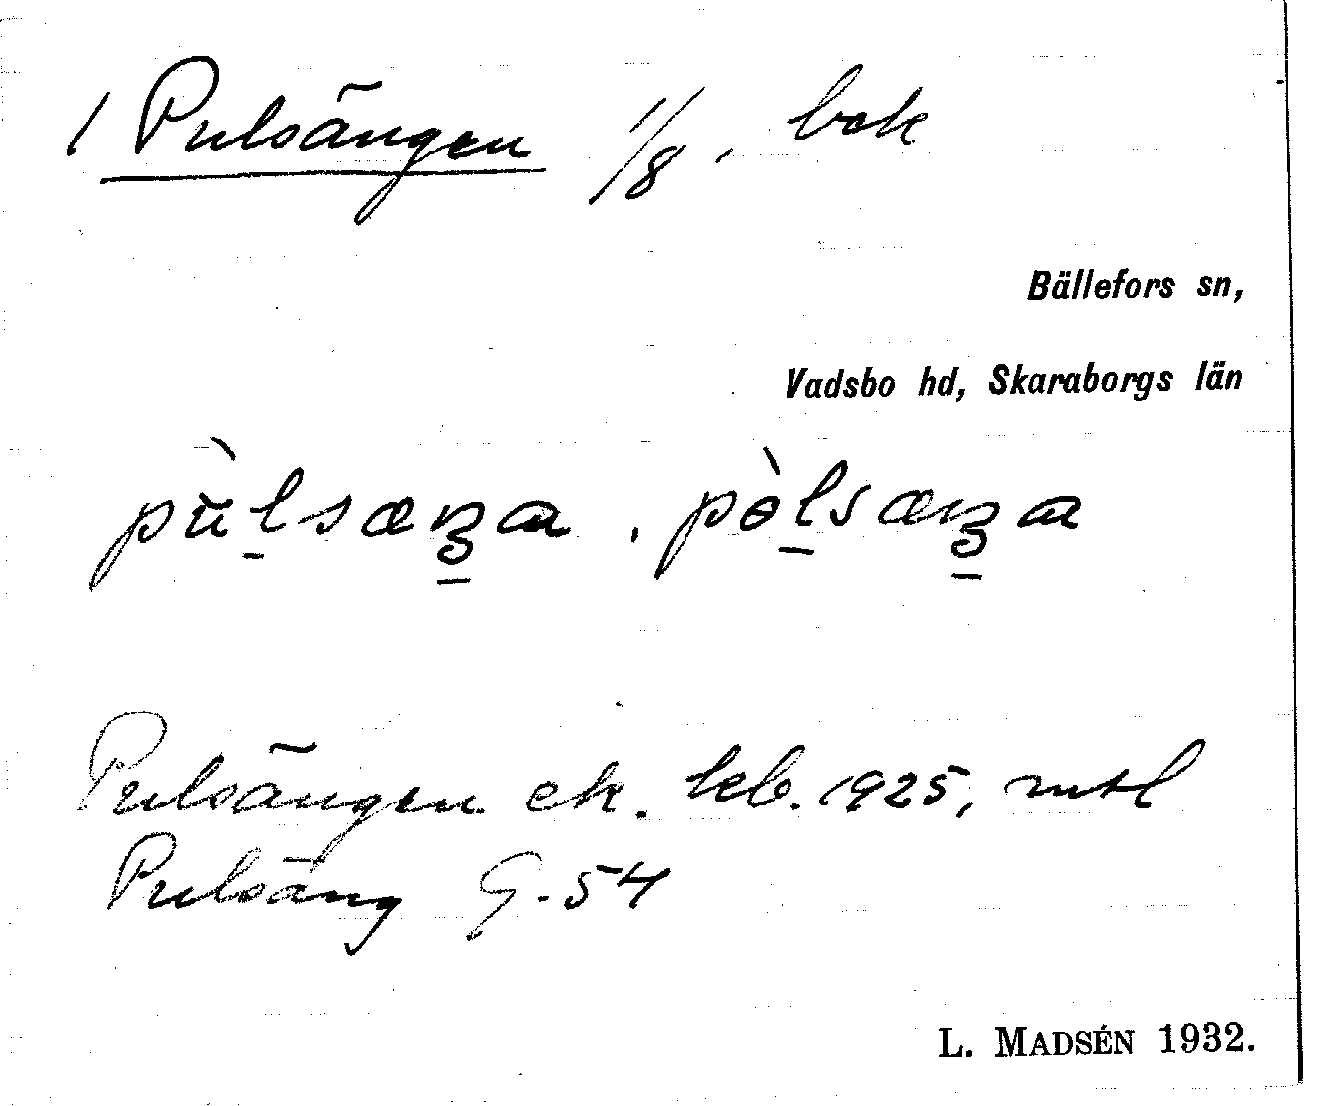 1 Pulsängen 1/8, bok
Bällefors sn,
Vadsbo hd, Skaraborgs län
pùl̠sæŋ̠a, pòl̠sæŋ̠a
Pulsängen ek. kb. 1925, mtl
Pulsäng G. 54
L. MADSÉN 1932.